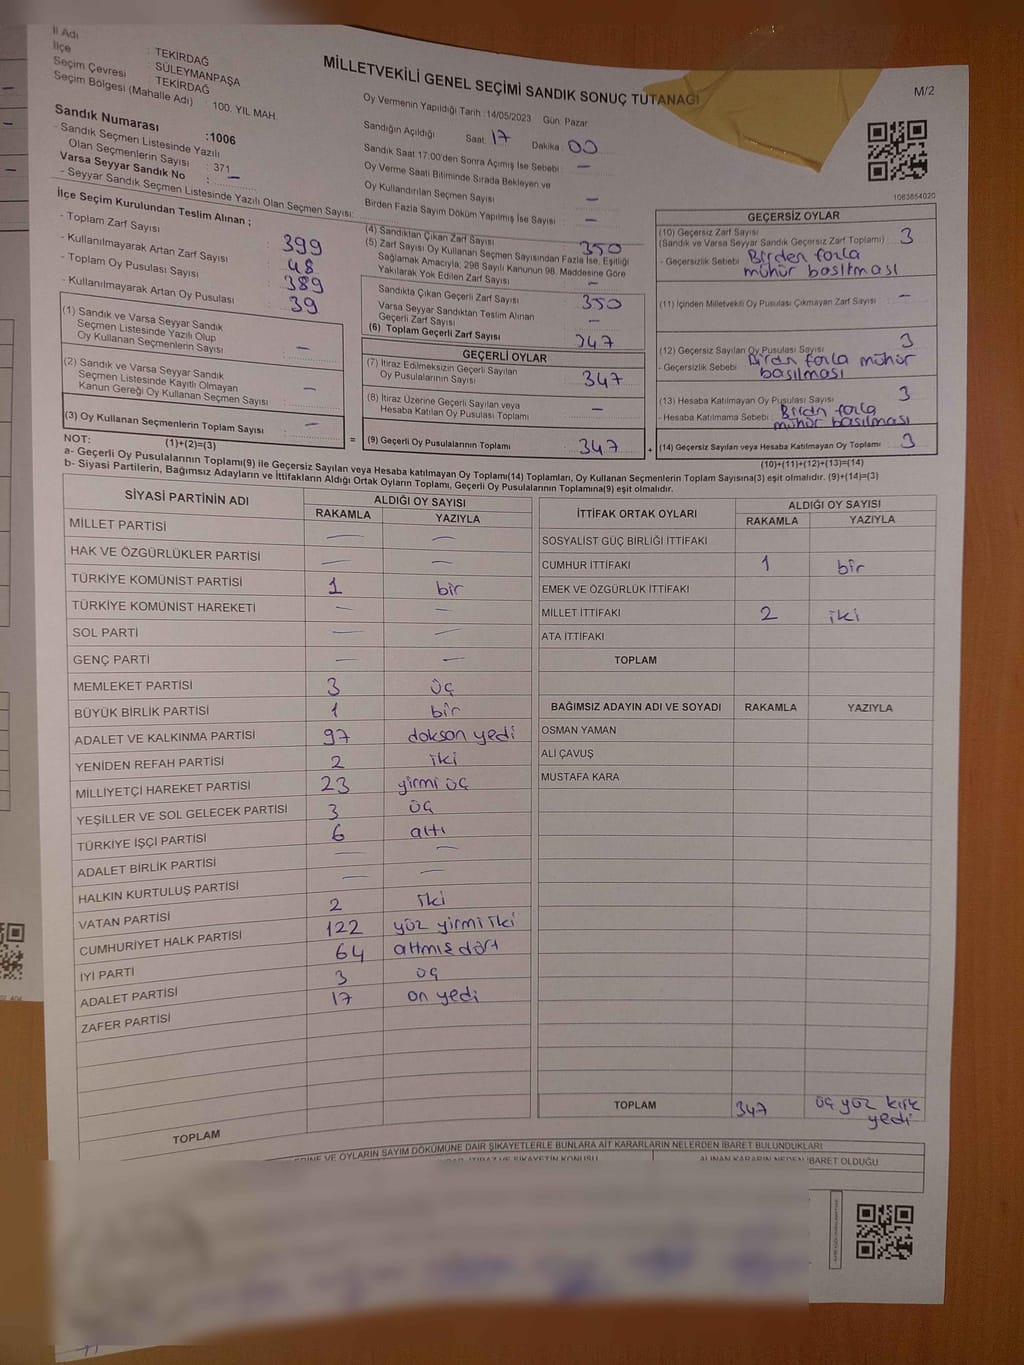 İl Adı : TEKİRDAĞ
İlçe : SÜLEYMANPAŞA
Seçim Çevresi : TEKİRDAĞ
Seçim Bölgesi (Mahalle Adı) : 100. YIL MAH.
MİLLETVEKİLİ GENEL SEÇİMİ SANDIK SONUÇ TUTANAĞI
M/2
Oy Vermenin Yapıldığı Tarih : 14/05/2023 Gün: Pazar
Sandığın Açıldığı Saat: 17 Dakika : 00
Sandık Saat 17:00'den Sonra Açımış İse Sebebi : —
Oy Verme Saati Bitiminde Sırada Bekleyen ve
Oy Kullandırılan Seçmen Sayısı —
Birden Fazla Sayım Döküm Yapılmış İse Sayısı : —
Sandık Numarası :1006
- Sandık Seçmen Listesinde Yazılı
Olan Seçmenlerin Sayısı : 371
Varsa Seyyar Sandık No : —
- Seyyar Sandık Seçmen Listesinde Yazılı Olan Seçmen Sayısı:
İlçe Seçim Kurulundan Teslim Alınan ;
- Toplam Zarf Sayısı : 399
- Kullanılmayarak Artan Zarf Sayısı : 48
- Toplam Oy Pusulası Sayısı : 389
- Kullanılmayarak Artan Oy Pusulası : 39
(1) Sandık ve Varsa Seyyar Sandık
Seçmen Listesinde Yazılı Olup
Oy Kullanan Seçmenlerin Sayısı : —
(2) Sandık ve Varsa Seyyar Sandık
Seçmen Listesinde Kayıtlı Olmayan
Kanun Gereği Oy Kullanan Seçmen Sayısı : —
(3) Oy Kullanan Seçmenlerin Toplam Sayısı : —
(1)+(2)=(3)
(4) Sandıktan Çıkan Zarf Sayısı : 350
(5) Zarf Sayısı Oy Kullanan Seçmen Sayısından Fazla İse, Eşitliği
Sağlamak Amacıyla; 298 Sayılı Kanunun 98. Maddesine Göre
Yakılarak Yok Edilen Zarf Sayısı : —
Sandıkta Çıkan Geçerli Zarf Sayısı : 350
Varsa Seyyar Sandıktan Teslim Alınan
Geçerli Zarf Sayısı : —
(6) Toplam Geçerli Zarf Sayısı : 347
GEÇERLİ OYLAR
(7) İtiraz Edilmeksizin Geçerli Sayılan
Oy Pusulalarının Sayısı : 347
(8) İtiraz Üzerine Geçerli Sayılan veya
Hesaba Katılan Oy Pusulası Toplamı : —
= (9) Geçerli Oy Pusulalarının Toplamı : 347 +
1083854020
GEÇERSİZ OYLAR
(10) Geçersiz Zarf Sayısı
(Sandık ve Varsa Seyyar Sandık Geçersiz Zarf Toplamı) : 3
- Geçersizlik Sebebi : Birden fazla
mühür basılması
(11) İçinden Milletvekili Oy Pusulası Çıkmayan Zarf Sayısı : —
(12) Geçersiz Sayılan Oy Pusulası Sayısı : 3
- Geçersizlik Sebebi : Birden fazla mühür
basılması
(13) Hesaba Katılmayan Oy Pusulası Sayısı : 3
- Hesaba Katılmama Sebebi : Birdn fazla
mühür basılması
(14) Geçersiz Sayılan veya Hesaba Katılmayan Oy Toplamı : 3
(10)+(11)+(12)+(13)=(14)
NOT:
a- Geçerli Oy Pusulalarının Toplamı(9) ile Geçersiz Sayılan veya Hesaba katılmayan Oy Toplamı(14) Toplamları, Oy Kullanan Seçmenlerin Toplam Sayısına(3) eşit olmalıdır. (9)+(14)=(3)
b- Siyasi Partilerin, Bağımsız Adayların ve İttifakların Aldığı Ortak Oyların Toplamı, Geçerli Oy Pusulalarının Toplamına(9) eşit olmalıdır.
SİYASİ PARTİNİN ADI ALDIĞI OY SAYISI
RAKAMLA YAZIYLA
MİLLET PARTİSİ — —
HAK VE ÖZGÜRLÜKLER PARTİSİ — —
TÜRKİYE KOMÜNİST PARTİSİ 1 bir
TÜRKİYE KOMÜNİST HAREKETİ — —
SOL PARTİ — —
GENÇ PARTİ — —
MEMLEKET PARTİSİ 3 üç
BÜYÜK BİRLİK PARTİSİ 1 bir
ADALET VE KALKINMA PARTİSİ 97 doksan yedi
YENİDEN REFAH PARTİSİ 2 iki
MİLLİYETÇİ HAREKET PARTİSİ 23 yirmi üç
YEŞİLLER VE SOL GELECEK PARTİSİ 3 üç
TÜRKİYE İŞÇİ PARTİSİ 6 altı
ADALET BİRLİK PARTİSİ — —
HALKIN KURTULUŞ PARTİSİ — —
VATAN PARTİSİ 2 iki
CUMHURİYET HALK PARTİSİ 122 yüz yirmi iki
İYİ PARTİ 64 altmış dört
ADALET PARTİSİ 3 üç
ZAFER PARTİSİ 17 on yedi
TOPLAM
İTTİFAK ORTAK OYLARI ALDIĞI OY SAYISI
RAKAMLA YAZIYLA
SOSYALİST GÜÇ BİRLİĞİ İTTİFAKI
CUMHUR İTTİFAKI 1 bir
EMEK VE ÖZGÜRLÜK İTTİFAKI
MİLLET İTTİFAKI 2 iki
ATA İTTİFAKI
TOPLAM
BAĞIMSIZ ADAYIN ADI VE SOYADI RAKAMLA YAZIYLA
OSMAN YAMAN
ALİ ÇAVUŞ
MUSTAFA KARA
TOPLAM 347 üç yüz kırk
yedi
VE OYLARIN SAYIM DÖKÜMÜNE DAİR ŞİKAYETLERLE BUNLARA AİT KARARLARIN NELERDEN İBARET BULUNDUKLARI
İTİRAZ VE ŞİKAYETİN KONUSU ALINAN KARARIN NEDEN İBARET OLDUĞU